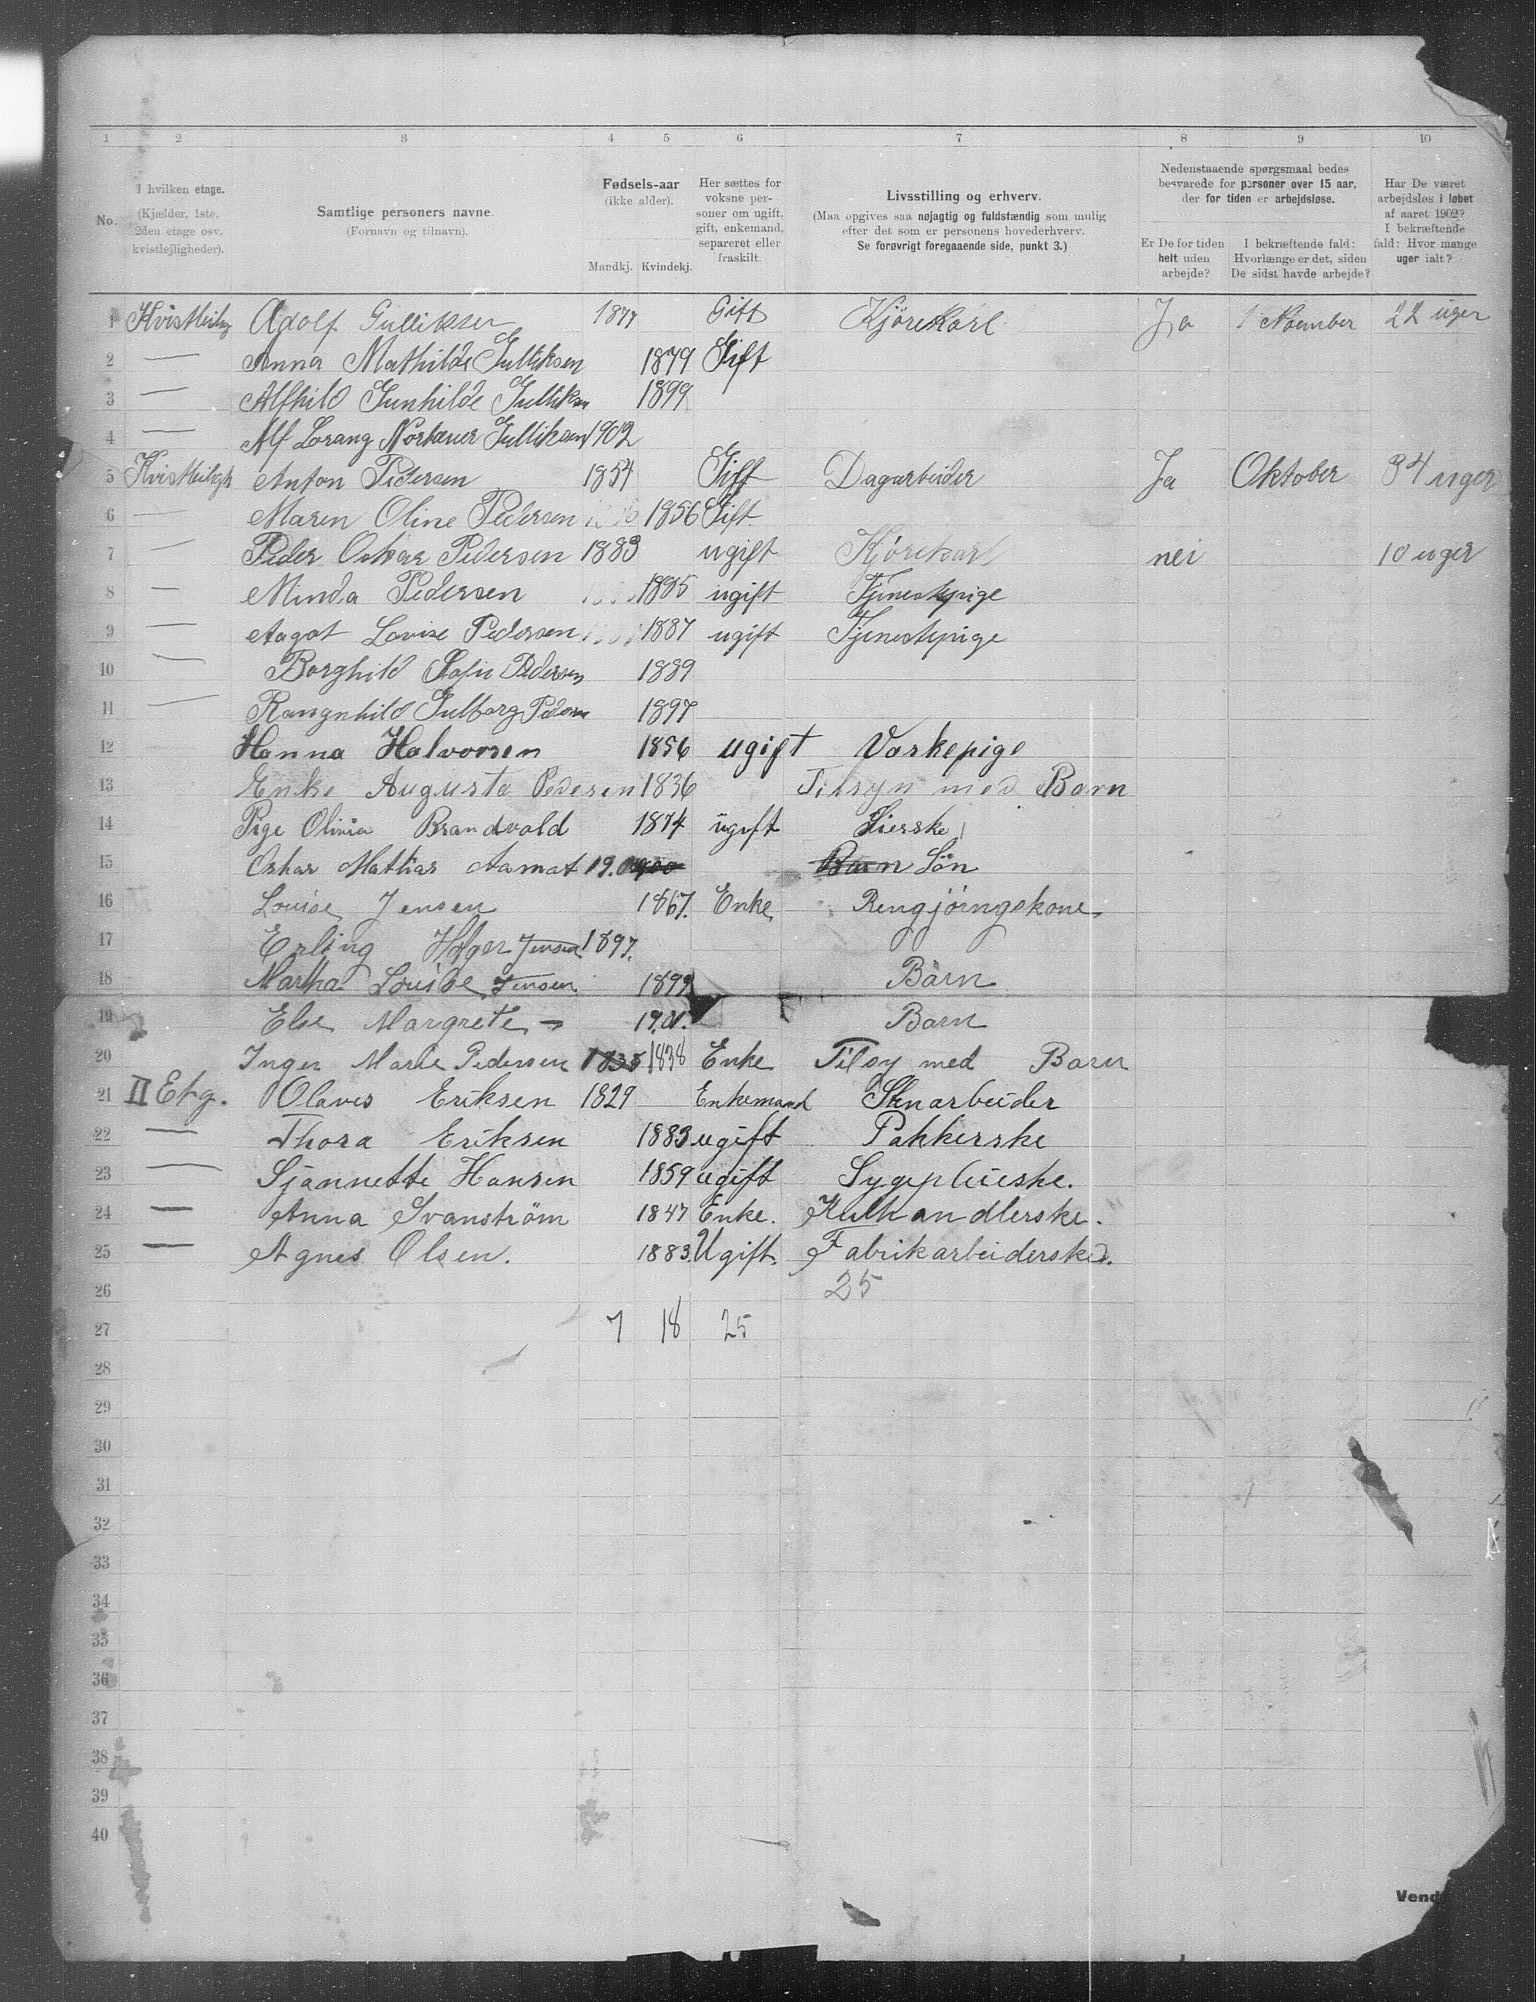 1 2 3 4 5 6 7 8 9 10
No.
I hvilken etage.
(Kjælder, 1ste, 2den etage osv. kvistlejligheder).
Samtlige personers navne.
(Fornavn og tilnavn).
Fødsels-aar
(ikke alder).
Mandkj. Kvindekj.
Her sættes for voksne personer om ugift, gift, enkemand, separeret eller fraskilt.
Livsstilling og erhverv.
(Maa opgives saa nøjagtig og fuldstændig som mulig efter det som er personens hovederhverv. Se forøvrigt foregaaende side, punkt 3.)
Nedenstaaende spørgsmaal bedes besvarede for personer over 15 aar, der for tiden er arbejdsløse.
Er De for tiden helt uden arbejde?
I bekræftende fald: Hvorlænge er det, siden De sidst havde arbejde?
Har De været arbejdsløs i løbet af aaret 1902? I bekræftende fald: Hvor mange uger ialt?
1 Adolf Gulliksen 1877 Gift Kjørekarl Ja 1 November 22 uger
2 — Anna Mathilde Gulliksen 1879 Gift
3 — Alfhild Gunhilde Gulliksen 1899
4 — Alf Lorang Gulliksen 1902
5 Anton Pedersen 1854 Gift Dagarbeider Ja Oktober 34 uger
6 — Maren Oline Pedersen 1856 Gift
7 — Peder Oskar Pedersen 1883 ugift Kjørekarl nei 10 uger
8 — Minda Pedersen 1885 ugift Tjenestepige
9 — Aagot Lovise Pedersen 1887 ugift Tjenestepige
10 — Borghild Sofie Pedersen 1889
11 — Rangnhild Gulborg Pedersen 1897
12 Hanna Halvorsen 1856 ugift Vaskepige
13 Enke Augusta Pedersen 1836 Tilsyn med Barn
14 Pige Olivia Brandvold 1874 ugift Sierske
15 Oskar Mathias Aamot 19.00 Barn Søn
16 Louise Jensen 1867. Enke Rengjøringskone
17 Erling Holger Jensen 1897.
18 Martha Louise Jensen 1899 Barn
19 Else Margrete — 19.01. Barn
20 Inger Marie Pedersen 1838 1838 Enke Tilsy med Barn
21 II Etg. Olaves Eriksen 1829 Enkemand Stenarbeider
22 — Thora Eriksen 1883 ugift Pakkerske
23 — Sjannette Hansen 1859 ugift Sygepleieske.
24 — Anna Svanstrøm 1847 Enke. Kulhandlerske.
25 — Agnes Olsen. 1883. Ugift. Fabrikarbeiderske.
26 25
27 7 18 25
28
29
30
31
32
33
34
35
36
37
38
39
40
Vend